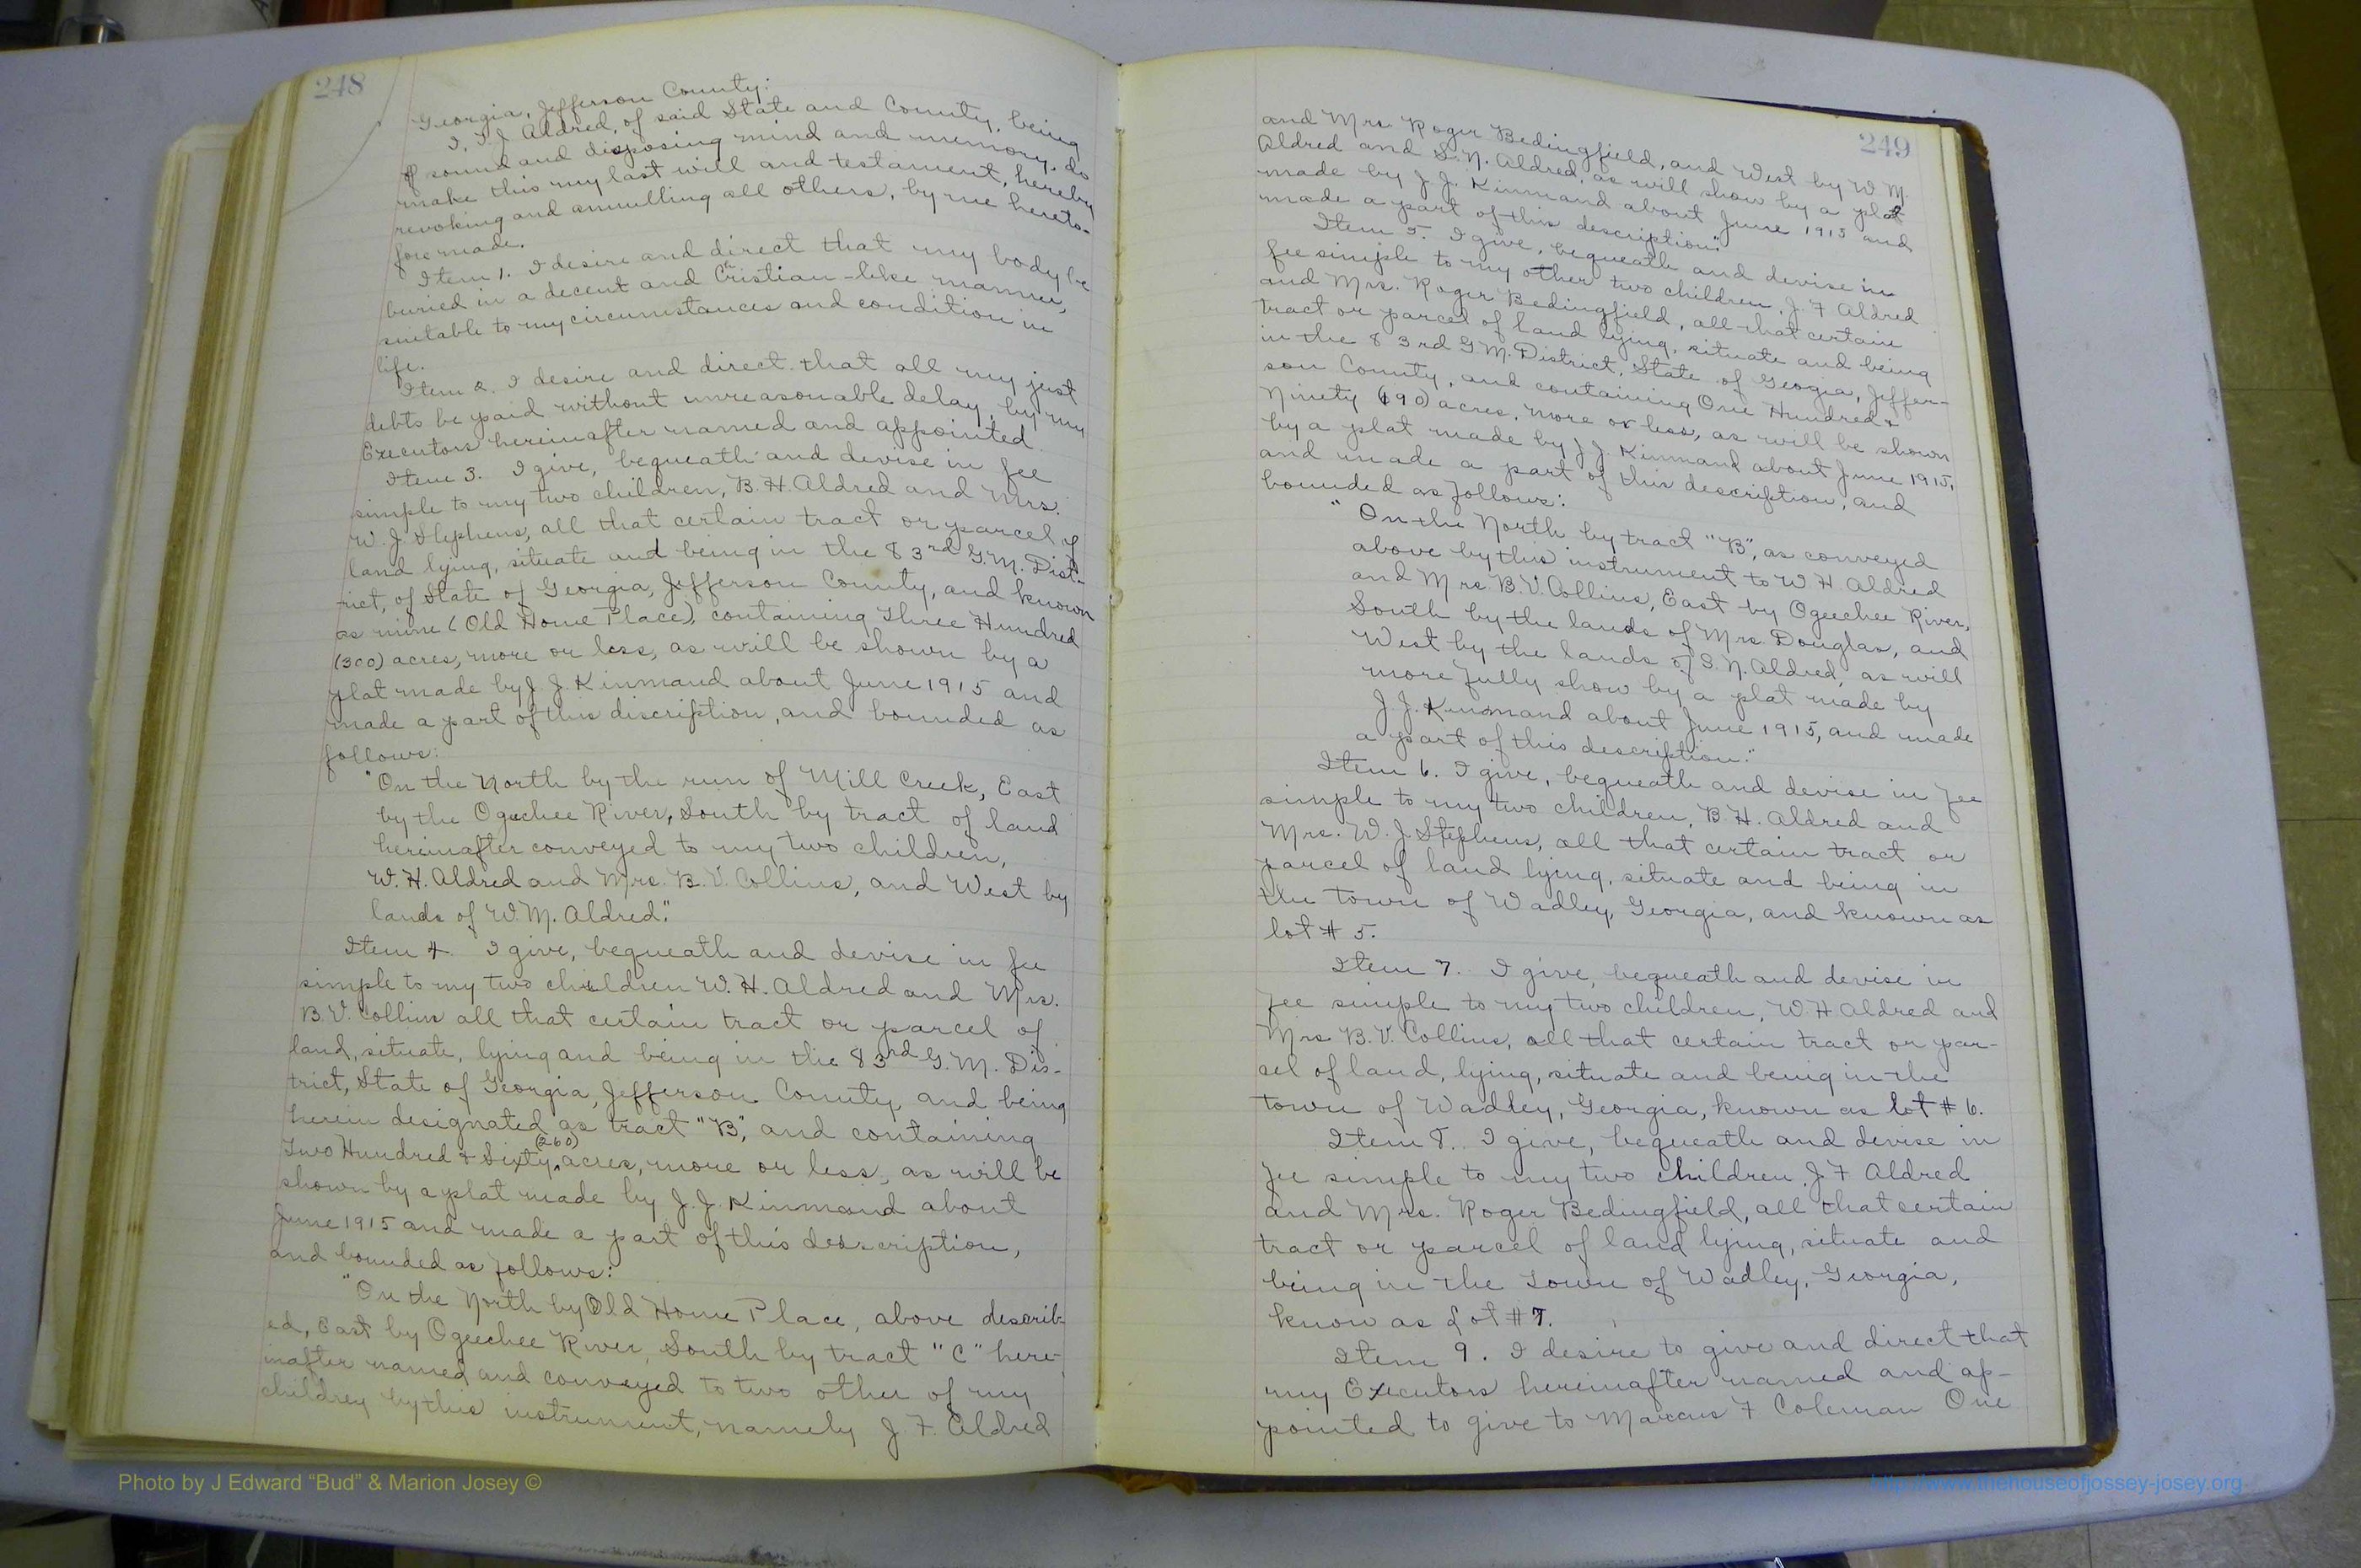 248
Georgia, Jefferson County:
I, T. J. Aldred, of said State and County, being
of sound and disposing mind and memory, do
make this my last will and testament, hereby
revoking and annulling all others, by me hereto-
fore made.
Item 1. I desire and direct that my body be
buried in a decent and Christian-like manner,
suitable to my circumstances and condition in
life.
Item 2. I desire and direct that all my just
debts be paid without unreasonable delay, by my
Executors hereinafter named and appointed.
Item 3. I give, bequeath and devise in fee
simple to my two children, B. H. Aldred and Mrs.
W. J. Stephens, all that certain tract or parcel of
land lying, situate and being in the 83rd G. M. Dist-
rict, of State of Georgia, Jefferson County, and known
as mine (Old Home Place), containing Three Hundred
(300) acres, more or less, as will be shown by a
plat made by J. J. Kinmand about June 1915 and
made a part of this discription, and bounded as
follows:
"On the North by the run of Mill Creek, East
by the Ogechee River, South by tract of land
hereinafter conveyed to my two children,
W. H. Aldred and Mrs. B. V. Collins, and West by
lands of W. M. Aldred."
Item 4. I give, bequeath and devise in fee
simple to my two children W. H. Aldred and Mrs.
B. V. Collins all that certain tract or parcel of
land, situate, lying and being in the 83rd G. M. Dis-
trict, State of Georgia, Jefferson County, and being
herein designated as tract "B", and containing
Two Hundred & Sixty (260) acres, more or less, as will be
shown by a plat made by J. J. Kinmand about
June 1915 and made a part of this desscription,
and bounded as follows:
"On the North by Old Home Place, above describ-
ed, East by Ogeechee River, South by tract "C" here-
inafter named and conveyed to two other of my
children by this instrument, namely J. F. Aldred
249
and Mrs Roger Bedingfield, and West by W. M.
Aldred and S. N. Aldred, as will show by a plat
made by J. J. Kinmand about June 1915 and
made a part of this description."
Item 5. I give, bequeath and devise in
fee simple to my other two children, J. F Aldred
and Mrs. Roger Bedingfield, all that certain
tract or parcel of land lying, situate and being
in the 83rd G. M. District, State of Georgia, Jeffer-
son County, and containing One Hundred &
Ninety (190) acres, more or less, as will be shown
by a plat made by J. J. Kinmand about June 1915,
and made a part of this description, and
bounded as follows:
"On the North by tract "B", as conveyed
above by this instrument to W. H. Aldred
and Mrs. B. V. Collins, East by Ogeechee River,
South by the lands of Mrs. Douglas, and
West by the lands of S. N. Aldred, as will
more fully show by a plat made by
J. J. Kinmand about June 1915, and made
a part of this description."
Item 6. I give, bequeath and devise in fee
simple to my two children, B. H. Aldred and
Mrs. W. J. Stephens, all that certain tract or
parcel of land lying, situate and being in
the town of Wadley, Georgia, and known as
lot # 5.
Item 7. I give, bequeath and devise in
fee simple to my two children, W. H. Aldred and
Mrs B. V. Collins, all that certain tract or par-
cel of land, lying, situate and being in the
town of Wadley, Georgia, known as lot # 6.
Item 8. I give, bequeath and devise in
fee simple to my two children, J F Aldred
and Mrs. Roger Bedingfield, all that certain
tract or parcel of land lying, situate and
being in the town of Wadley, Georgia,
know as Lot # 7.
Item 9. I desire to give and direct that
my Executors hereinafter named and ap-
pointed to give to Marcus F Coleman One
Photo by J Edward “Bud” & Marion Josey ©
http://www.thehouseofjossey-josey.org